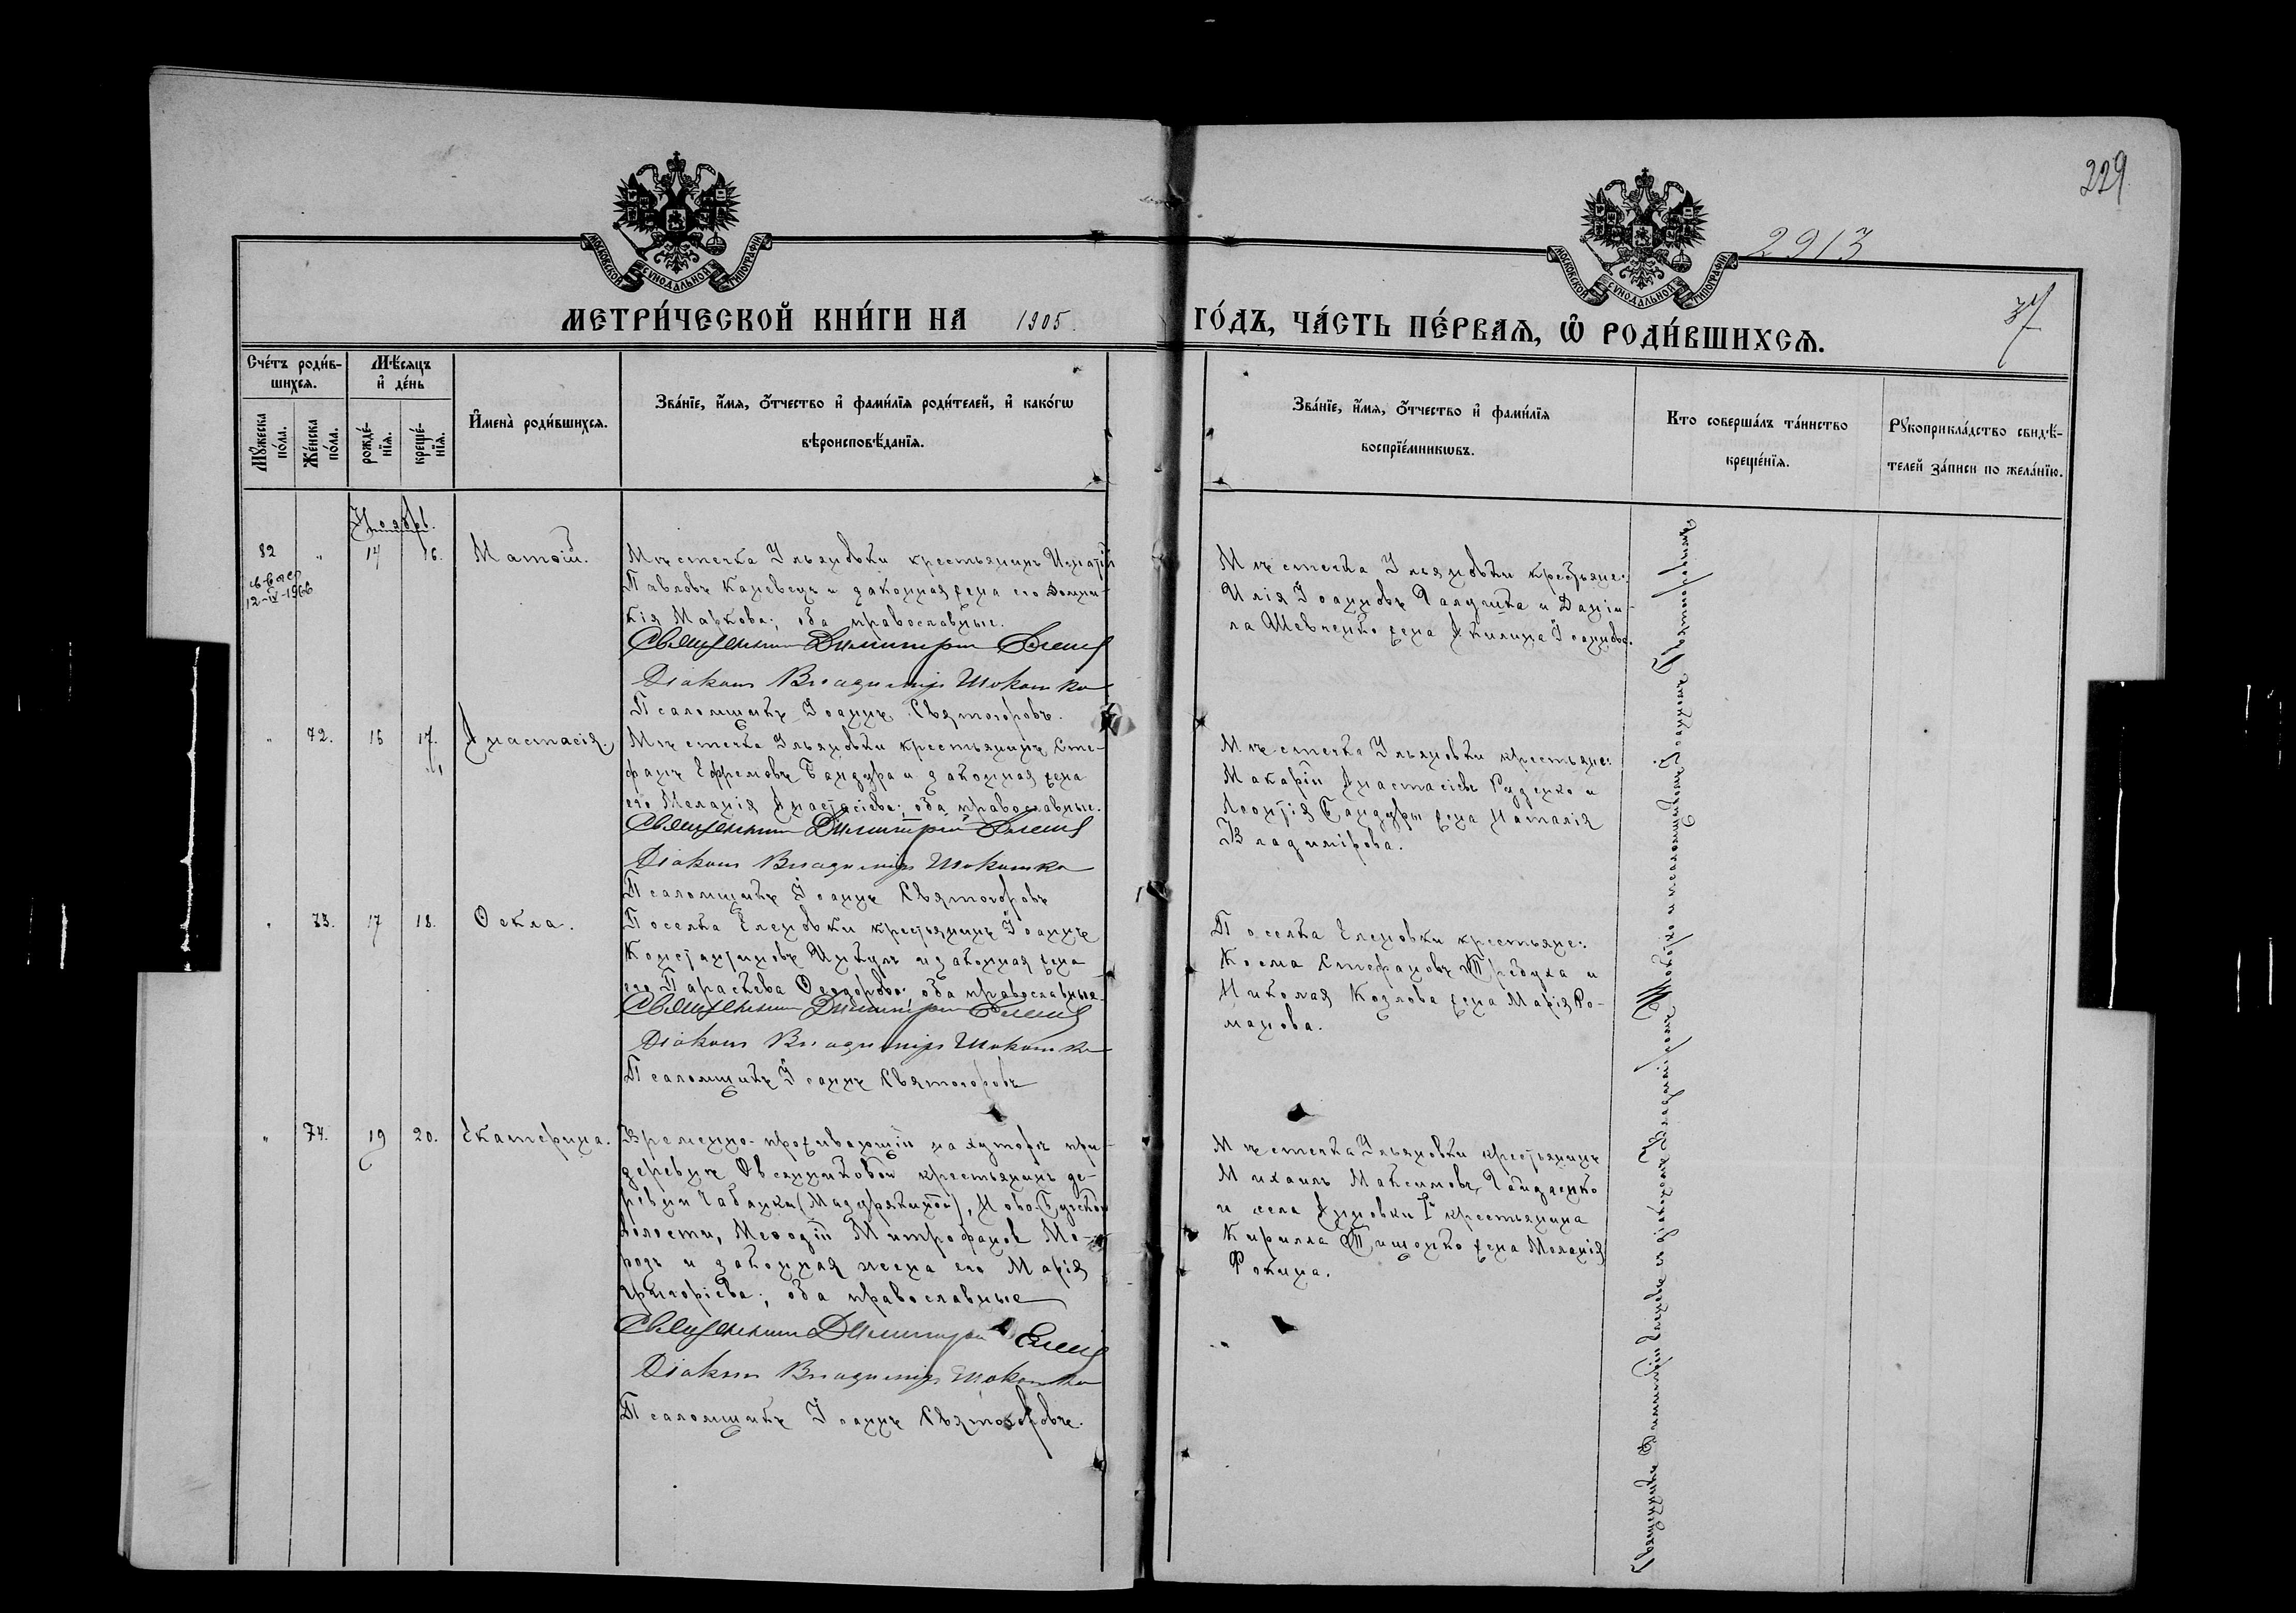 229
2913
37
МОСКОВСКОЙ СѴНОДАЛЬНОЙ ТИПОГРАФІИ
МОСКОВСКОЙ СѴНОДАЛЬНОЙ ТИПОГРАФІИ
МЕТРИ́ЧЕСКОЙ КНИ́ГИ НА 1905 ГО́ДЪ, ЧА́СТЬ ПЕ́РВАѦ, Ѿ РОДИ́ВШИХСѦ.
Сче́тъ роди́в-
шихсѧ.
Мꙋ́жеска по́ла.
Же́нска по́ла.
Мѣ́сѧцъ
и҆ де́нь
рожде́-
нїѧ.
креще́-
нїѧ.
И҆мена̀ роди́вшихсѧ.
Зва́нїе, и҆́мѧ, ѻ҆́тчество и҆ фами́лїѧ роди́телей, и҆ како́гѡ
вѣроисповѣ́данїѧ.
Зва́нїе, и҆́мѧ, ѻ҆́тчество и҆ фами́лїѧ
воспрїе́мникѡвъ.
Кто соверша́лъ та́инство
креще́нїѧ.
Рꙋкоприкла́дство свидѣ́-
телей за́писи по жела́нїю.
Ноябрь.
82 " 14 16. Матѳій.
12-IV-1966
Мѣстечка Ульяновки крестьянинъ Игнатій
Павловъ Каневецъ и законная жена его Домни-
кія Маркова; оба православные.
Священникъ Димитрій Еленевъ
Діаконъ Владиміръ Шокотко
Псаломщикъ Іоаннъ Святогоровъ.
Мѣстечка Ульяновки крестьяне:
Илія Іоанновъ Галушка и Дании-
ла Шевченко жена Акилина Іоаннова.
" 72. 16 17. Анастасія.
Мѣстечка Ульяновки крестьянинъ Сте-
фанъ Ефремовъ Бандура и законная жена
его Меланія Анастасіева; оба православные.
Священникъ Димитрій Еленевъ
Діаконъ Владиміръ Шокотко
Псаломщикъ Іоаннъ Святогоровъ
Мѣстечка Ульяновки крестьяне:
Макарій Анастасіевъ Руденко и
Леонтія Бандуры жена Наталія
Владимірова.
" 73. 17 18. Ѳекла.
Поселка Еленовки крестьянинъ Іоаннъ
Константиновъ Цикулъ и законная жена
его Параскева Ѳеодорова; оба православные.
Священникъ Димитрій Еленевъ
Діаконъ Владиміръ Шокотко
Псаломщикъ Іоаннъ Святогоровъ
Поселка Еленовки крестьяне:
Косма Стефановъ Требуха и
Николая Козлова жена Марія Ро-
манова.
" 74. 19 20. Екатерина.
Временно-проживающій на хуторѣ при
деревнѣ Овсянниковой крестьянинъ де-
ревни Чабанки (Маздрякиной), Ново-Бугской
волости, Меѳодій Митрофановъ Мо-
розъ и законная жена его Марія
Григоріева; оба православные
Священникъ Димитрій Еленевъ
Діаконъ Владиміръ Шокотко
Псаломщикъ Іоаннъ Святогоровъ.
Мѣстечка Ульяновки крестьянинъ
Михаилъ Максимовъ Гайдаенко
и села Анновки I крестьянина
Кирилла Тищенко жена Меланія
Фокина.
Священникъ Димитрій Еленевъ съ діакономъ Владиміромъ Шокотко и псаломщикомъ Іоанномъ Святогоровымъ